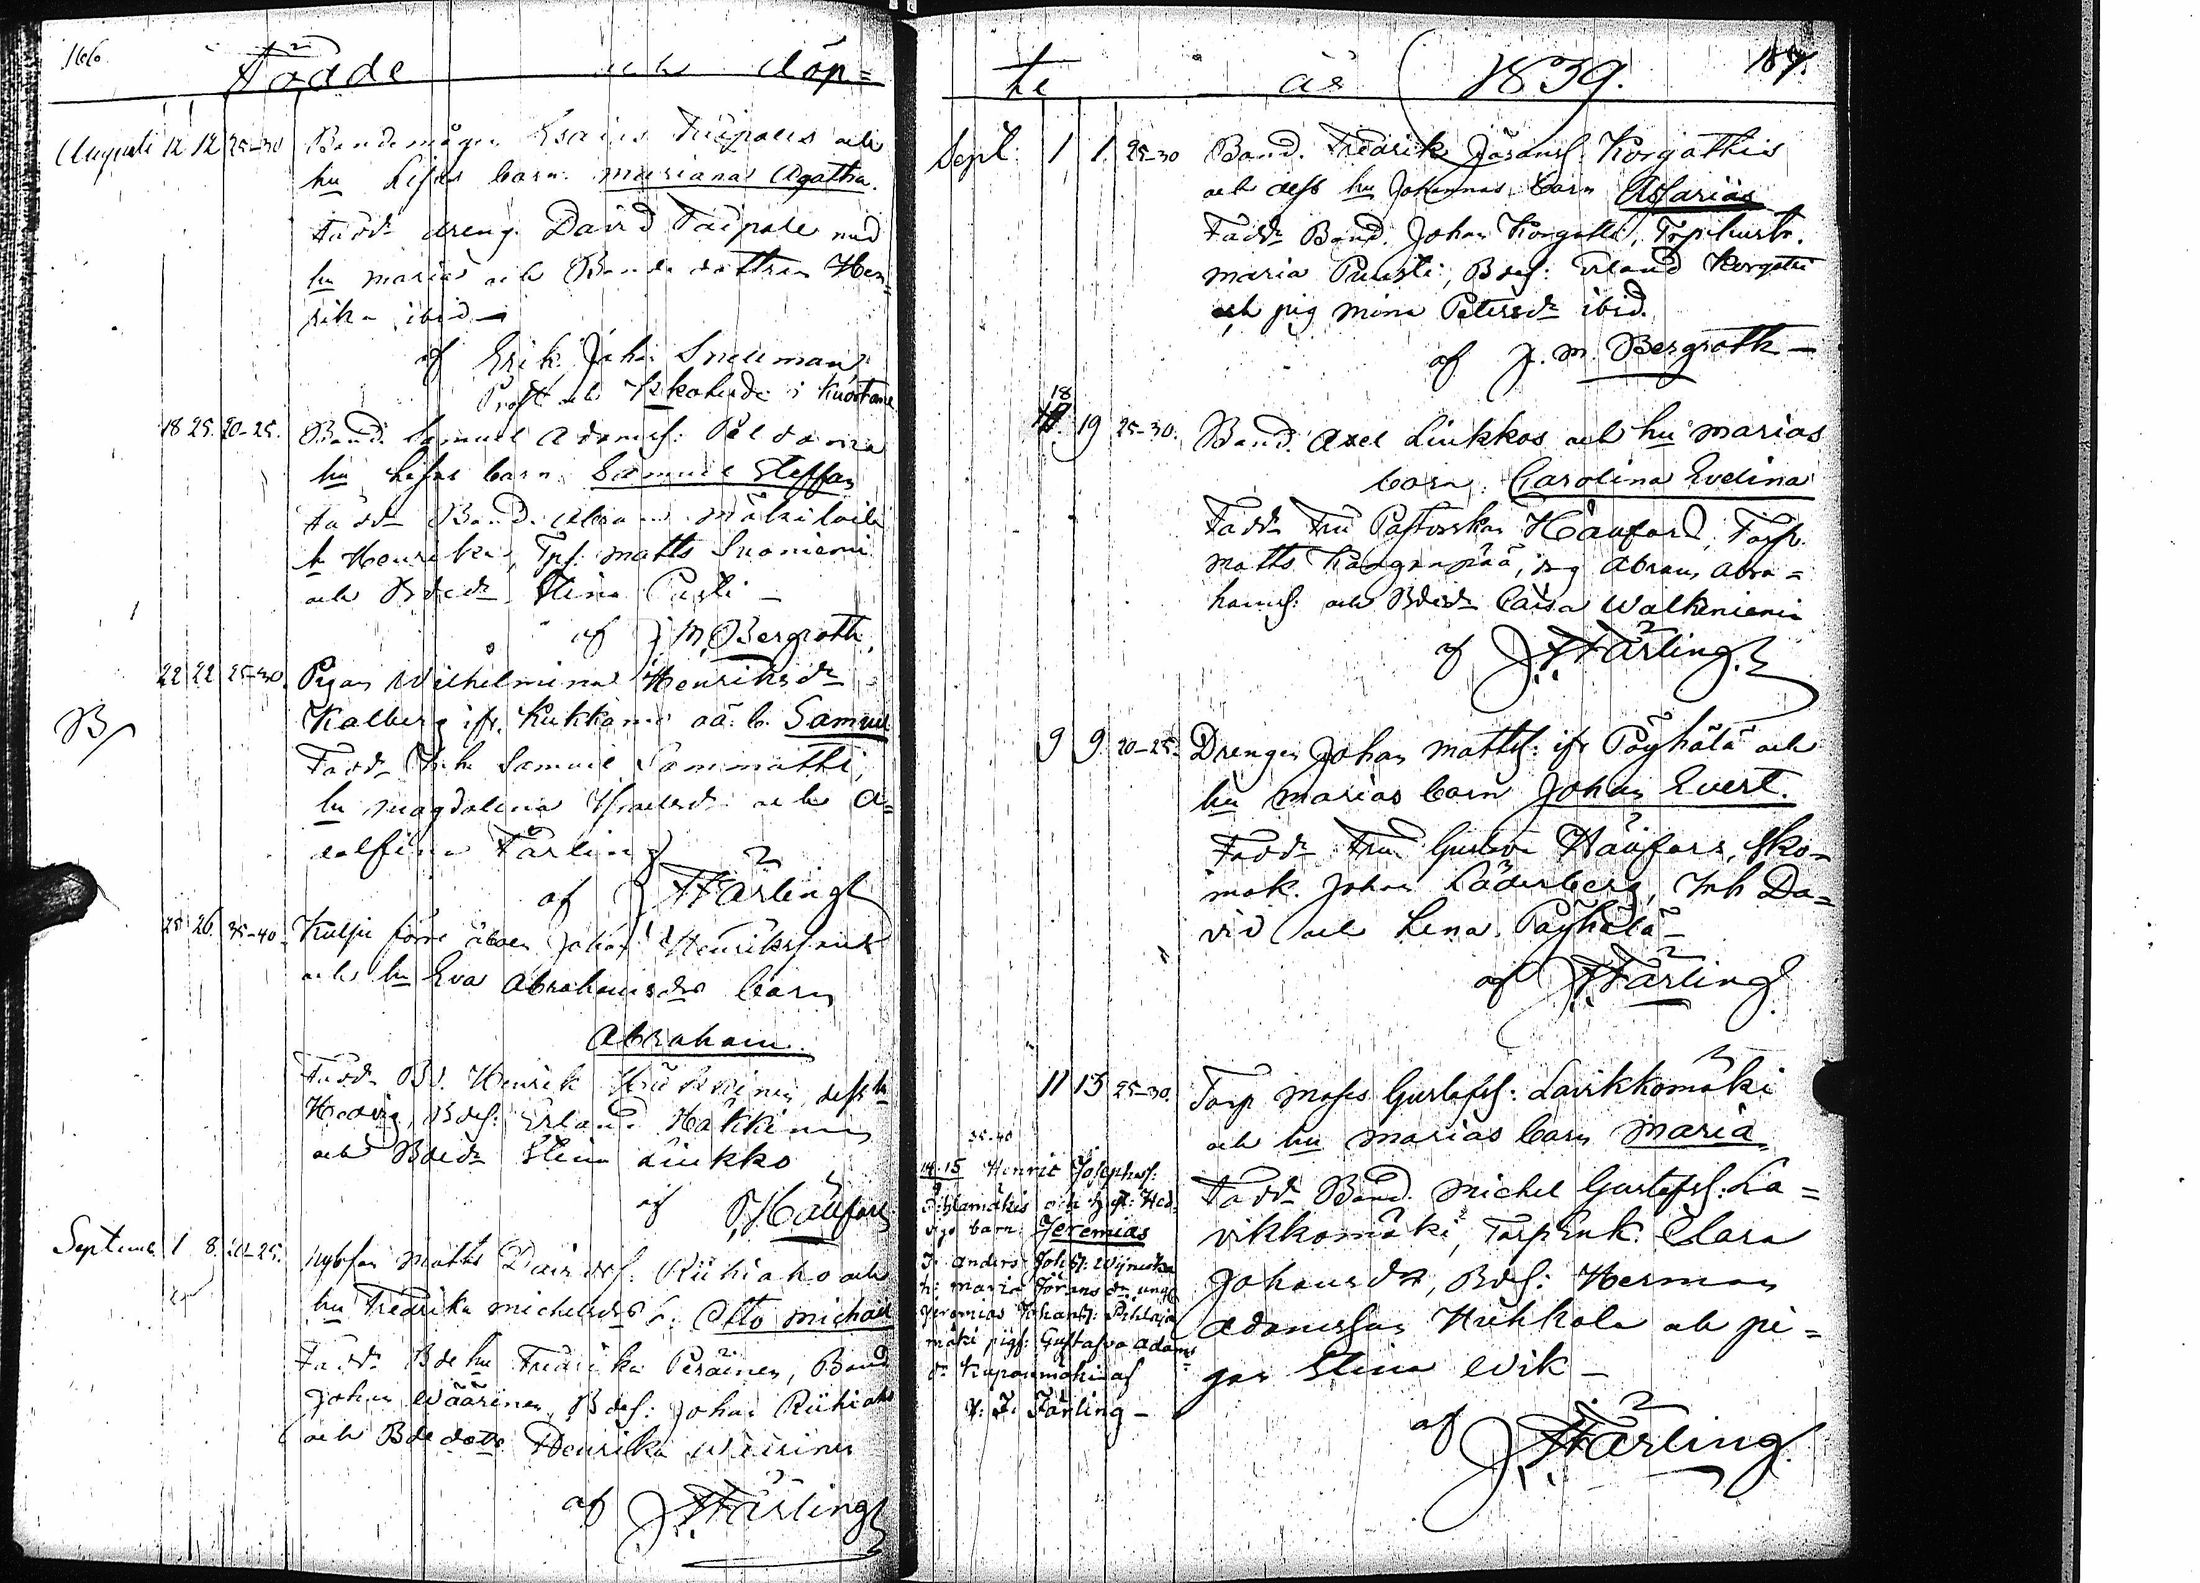 166
Födde och döp=
Augusti 12 12 25-30 Bondemågen Esaias Taipales och
hu Lisas barn. Mariana Agatha.
Fadd. dreng. David Taipale med
hu Maria och Bonde dottren Hen=
rika ibid
af Erik Joh. Snellman
Prost och Kkoherde i Kuortane
18 25. 20-25. Bond. Samuel Adamss:
hu Lisas barn Samuel Steffan
Fadd Bond. Abram
h Henrika, Tps. Matts Suoniemi
och Bdedr Stina
af J M Bergroth.
22 22 25-30. Pigan Wilhelmina Henriksdr
B Kalberg ifr. Kukkamo oä. b. Samuel
Fadd Inh. Samuel Sammatti,
hu Magdalena Israelsdr och A=
dolfina Färling
af J F Färling
25 26. 35-40 förre åboen Johan Henrikss
och hu Eva Abrahamsdrs barn
Abraham.
Fadd. Bd. Henrik dess h
Hedvig, Bdes: Erland Häkkinen
och Bdedr Stina Liukko
af Häufors
Septemb 1 8. 20-25. Nybyg. Matts Davidss. Riihiaho och
hu Fredrika Michelsdrs b. Otto Michaël
Fadd. Bde hu Fredrika Peräinen, Bond
Johan Wäärinen, Bdes: Johan Riihiaho
och Bdedottr. Henrika Wäärinen
af J F Färling
te år 1839. 167.
Sept: 1 1. 25-30 Bond. Fredrik Jöranss. Korgathis
och dess hu Johannas barn Assarias
Fadd. Bond. Johan Korgatti, Torphustr.
Maria Puusti, Bdes: Erland Korgatti
och pig Mina Petersdr ibid.
af J. M. Bergroth
18 19 25-30. Bond. Axel Liukkos och hu Marias
barn. Carolina Evelina
Fadd. Fru Pastorskan Häufors, Torp.
Matts Kangaspää, drg Abram Abra=
hamss: och Bdedr Caisa Walkeniemi
af J F Färling.
9 9 20-25. Drengen Johan Mattss: ifr Pöyhälä och
hu Marias barn Johan Evert.
Fadd. Fru Gustava Häufors, Sko=
mak. Johan Söderberg, Inh Da=
vid och Lena Pöyhälä
af J F Färling
11 15 25-30. Torp Moses Gustafss: Lavikkomäki
och hu Marias barn Maria
Fadd. Bond. Michel Gustafss. La=
vikkomäki, Torpenk. Clara
Johansdr, Bds: Herman
Adamsson Huhkola och pi=
gan Stina Wik
af J F Färling
35-40
14. 15 Henric Josephss:
Pihlamäkis och h st: Hed=
vigs barn: Jeremias
F. Anders Johss:
h: Maria Jöransdr ungk
Jeremias Johanss: Pihlaja
mäki pigf: Gustafva Adams
dr Kuparimäki af
J: F. Färling